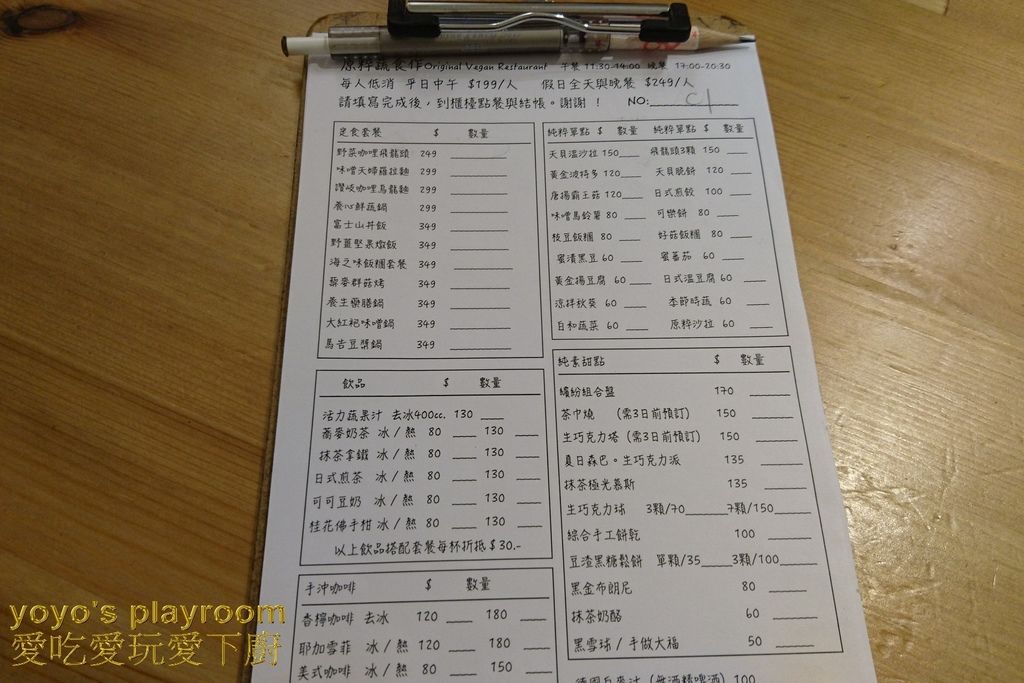 原粹蔬食作Original Vegan Restaurant 午餐 11:30-14:00 晚餐 17:00-20:30
每人低消 平日中午 $199/人 假日全天與晚餐 $249/人
請填寫完成後，到櫃檯點餐與結帳。謝謝！ NO: C1
定食套餐 $ 數量
野菜咖哩飛龍頭 249
味噌天婦羅拉麵 299
讚岐咖哩烏龍麵 299
養心鮮蔬鍋 299
富士山丼飯 349
野薑堅果燉飯 349
海之味飯糰套餐 349
藜麥群菇烤 349
養生藥膳鍋 349
大紅袍味噌鍋 349
馬告豆漿鍋 349
純粹單點 $ 數量 純粹單點 $ 數量
天貝溫沙拉 150 飛龍頭3顆 150
黃金波特多 120 天貝脆餅 120
唐揚霸王菇 120 日式煎餃 100
味噌馬鈴薯 80 可樂餅 80
枝豆飯糰 80 好菇飯糰 80
蜜漬黑豆 60 蜜蕃茄 60
黃金揚豆腐 60 日式溫豆腐 60
涼拌秋葵 60 季節時蔬 60
白和蔬菜 60 原粹沙拉 60
飲品 $ 數量
活力蔬果汁 去冰400cc. 130
蕎麥奶茶 冰/熱 80 130
抹茶拿鐵 冰/熱 80 130
日式煎茶 冰/熱 80 130
可可豆奶 冰/熱 80 130
桂花佛手柑 冰/熱 80 130
以上飲品搭配套餐每杯折抵$30.-
手沖咖啡 $ 數量
香檸咖啡 去冰 120 180
耶加雪菲 冰/熱 120 180
美式咖啡 冰/熱 80 150
純素甜點 $ 數量
繽紛組合盤 170
茶巾燒 (需3日前預訂) 150
生巧克力塔 (需3日前預訂) 150
夏日森巴。生巧克力派 135
抹茶極光慕斯 135
生巧克力球 3顆/70 7顆/150
綜合手工餅乾 100
豆渣黑糖鬆餅 單顆/35 3顆/100
黑金布朗尼 80
抹茶奶酪 60
黑雪球/手做大福 50
德國白麥汁 (無酒精啤酒) 100
yoyo's playroom
愛吃愛玩愛下廚